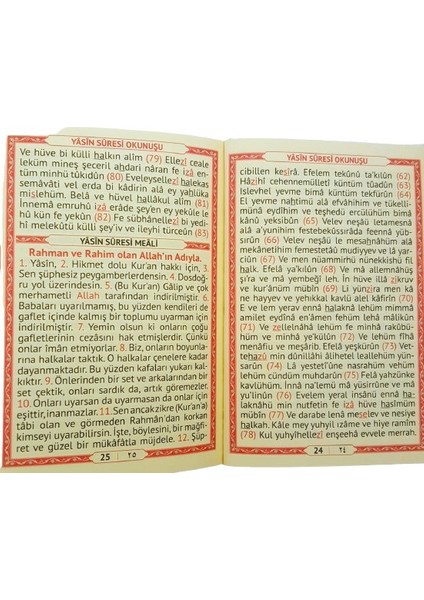 YÂSÎN SÛRESİ OKUNUŞU
Ve hüve bi külli halkın alîm (79) Ellezî ceale
leküm mineş şeceril ahdari nâran fe izâ en-
tüm minhü tûkıdûn (80) Eveleysellezî halekas
semâvâti vel erda bi kâdirin alâ ey yahlüka
mislehüm. Belâ ve hüvel hallâkul alîm (81)
İnnemâ emruhû izâ erâde şey'en ey yekûle le
hû kün fe yekûn (82) Fe sübhânellezî bi yedi-
hî melekûtü külli şey'iv ve ileyhi türceûn (83)
YÂSÎN SÛRESİ MEÂLİ
Rahman ve Rahim olan Allah'ın Adıyla.
1. Yâsîn, 2. Hikmet dolu Kur'an hakkı için, 3.
Sen şüphesiz peygamberlerdensin. 4. Dosdoğ-
ru yol üzerindesin. 5. (Bu Kur'an) Gâlip ve çok
merhametli Allah tarafından indirilmiştir. 6.
Babaları uyarılmamış, bu yüzden kendileri de
gaflet içinde kalmış bir toplumu uyarman için
indirilmiştir. 7. Yemin olsun ki onların çoğu
gafletlerinin cezasını hak etmişlerdir. Çünkü
onlar îman etmiyorlar. 8. Biz, onların boyunla-
rına halkalar taktık. O halkalar çenelere kadar
dayanmaktadır. Bu yüzden kafaları yukarı kal-
kıktır. 9. Önlerinden bir set ve arkalarından bir
set çektik, onları sardık da, artık göremezler.
10. Onları uyarsan da uyarmasan da onlar için
eşittir, inanmazlar. 11. Sen ancak zikre (Kur'an'a)
tâbi olan ve görmeden Rahmân'dan korkan
kimseyi uyarabilirsin. İşte, böylesini, bir mağfi-
ret ve güzel bir mükâfâtla müjdele. 12. Şüp-
25 ٢٥
YÂSÎN SÛRESİ OKUNUŞU
cibillen kesîrâ. Efelem tekûnû ta'kılûn (62)
Hâzihî cehennemülletî küntüm tûadûn (63)
Islevhel yevme bimâ küntüm tekfürûn (64)
El yevme nahtimü alâ efvâhihim ve tükelli-
münâ eydîhim ve teşhedü ercülühüm bimâ
kânû yeksibûn (65) Velev neşâü letamesnâ
alâ a'yunihim festebekussırâta feennâ yübsi-
rûn (66) Velev neşâü le mesahnâhüm alâ
mekânetihim femestetâû mudıyyev ve lâ yerciûn
(67) Ve men nüammirhü nünekkishü fil
halk. Efelâ ya'kılûn (68) Ve mâ allemnâhüş
şi'ra ve mâ yembeğî leh. İn hüve illâ zikruv
ve kur'ânüm mübîn (69) Li yünzira men kâ
ne hayyev ve yehıkkal kavlü alel kâfirîn (70)
E ve lem yerav ennâ halaknâ lehüm mimmâ
amilet eydînâ en'âmen fehüm lehâ mâlikûn
(71) Ve zellelnâhâ lehüm fe minhâ rakûbü-
hüm ve minhâ ye'külûn (72) Ve lehüm fîhâ
menâfiu ve meşârib. Efelâ yeşkürûn (73) Vet-
tehazû min dûnillâhi âlihetel leallehüm yün-
sarûn (74) Lâ yestetîûne nasrahüm ve hüm
lehüm cündüm muhdarûn (75) Felâ yahzünke
kavlühüm, İnnâ na'lemü mâ yüsirrûne ve mâ
yu'linûn (76) Evelem yeral insânü ennâ ha-
laknâhü min nutfetin fe izâ hüve hasîmüm
mübîn (77) Ve darabe lenâ meselev ve nesiye
halkah. Kâle mey yuhyil ızâme ve hiye ramîm
(78) Kul yuhyîhellezî enşeehâ evvele merrah.
24 ٢٤